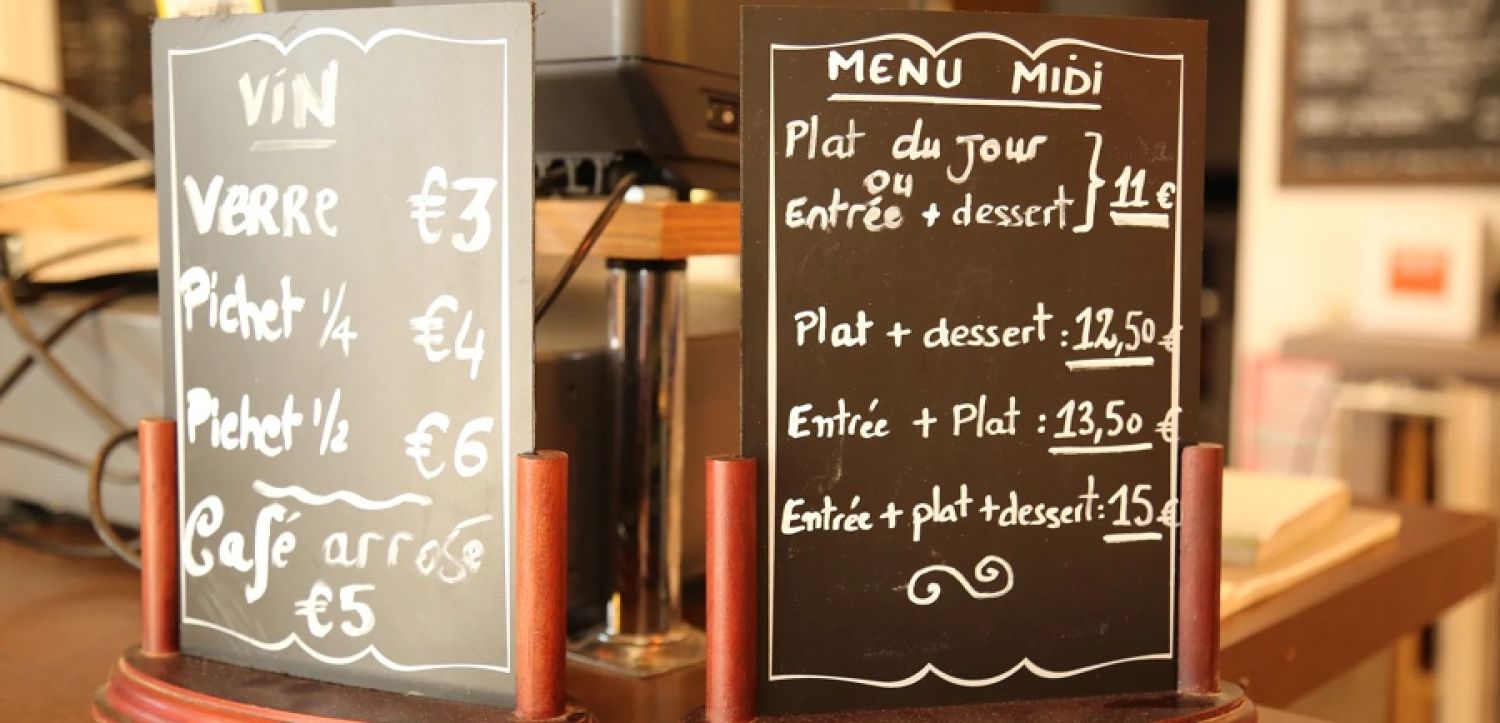 VIN
VERRE €3
Pichet 1/4 €4
Pichet 1/2 €6
Café arrosé
€5
MENU MIDI
Plat du jour
ou
Entrée + dessert } 11 €
Plat + dessert : 12,50 €
Entrée + Plat : 13,50 €
Entrée + plat + dessert : 15 €